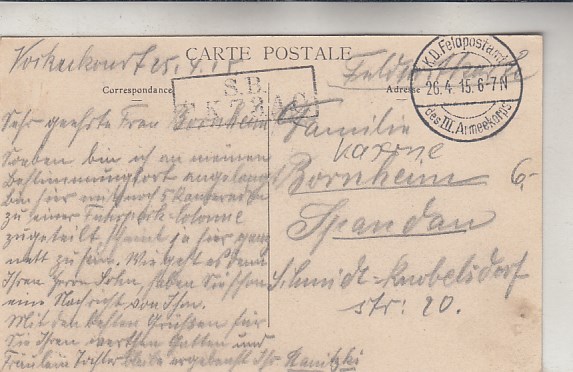 CARTE POSTALE
25.4.15
Feldpostkarte
Correspondance
Adresse
S.B.
K.D. Feldpostamt
26.4.15.6-7N
des III. Armeekorps
Sehr geehrte Frau Bornheim
Soeben bin ich an meinen
Bestimmungsort angelangt
bin hier mit noch 5 Kameraden
zu einer Fuhrpark-Colonne
zugeteilt, scheint ja hier ganz
nett zu sein. Wie geht es denn
Ihren Herrn Sohn, haben Sie schon
eine Nachricht von Ihm.
Mit den besten Grüssen für
Sie Ihren werthen Gatten und
Fräulein Tochter bleibe ergebenst Ihr
Familie
Bornheim
6,-
Spandau
Schmidt-Knobelsdorf
str: 20.